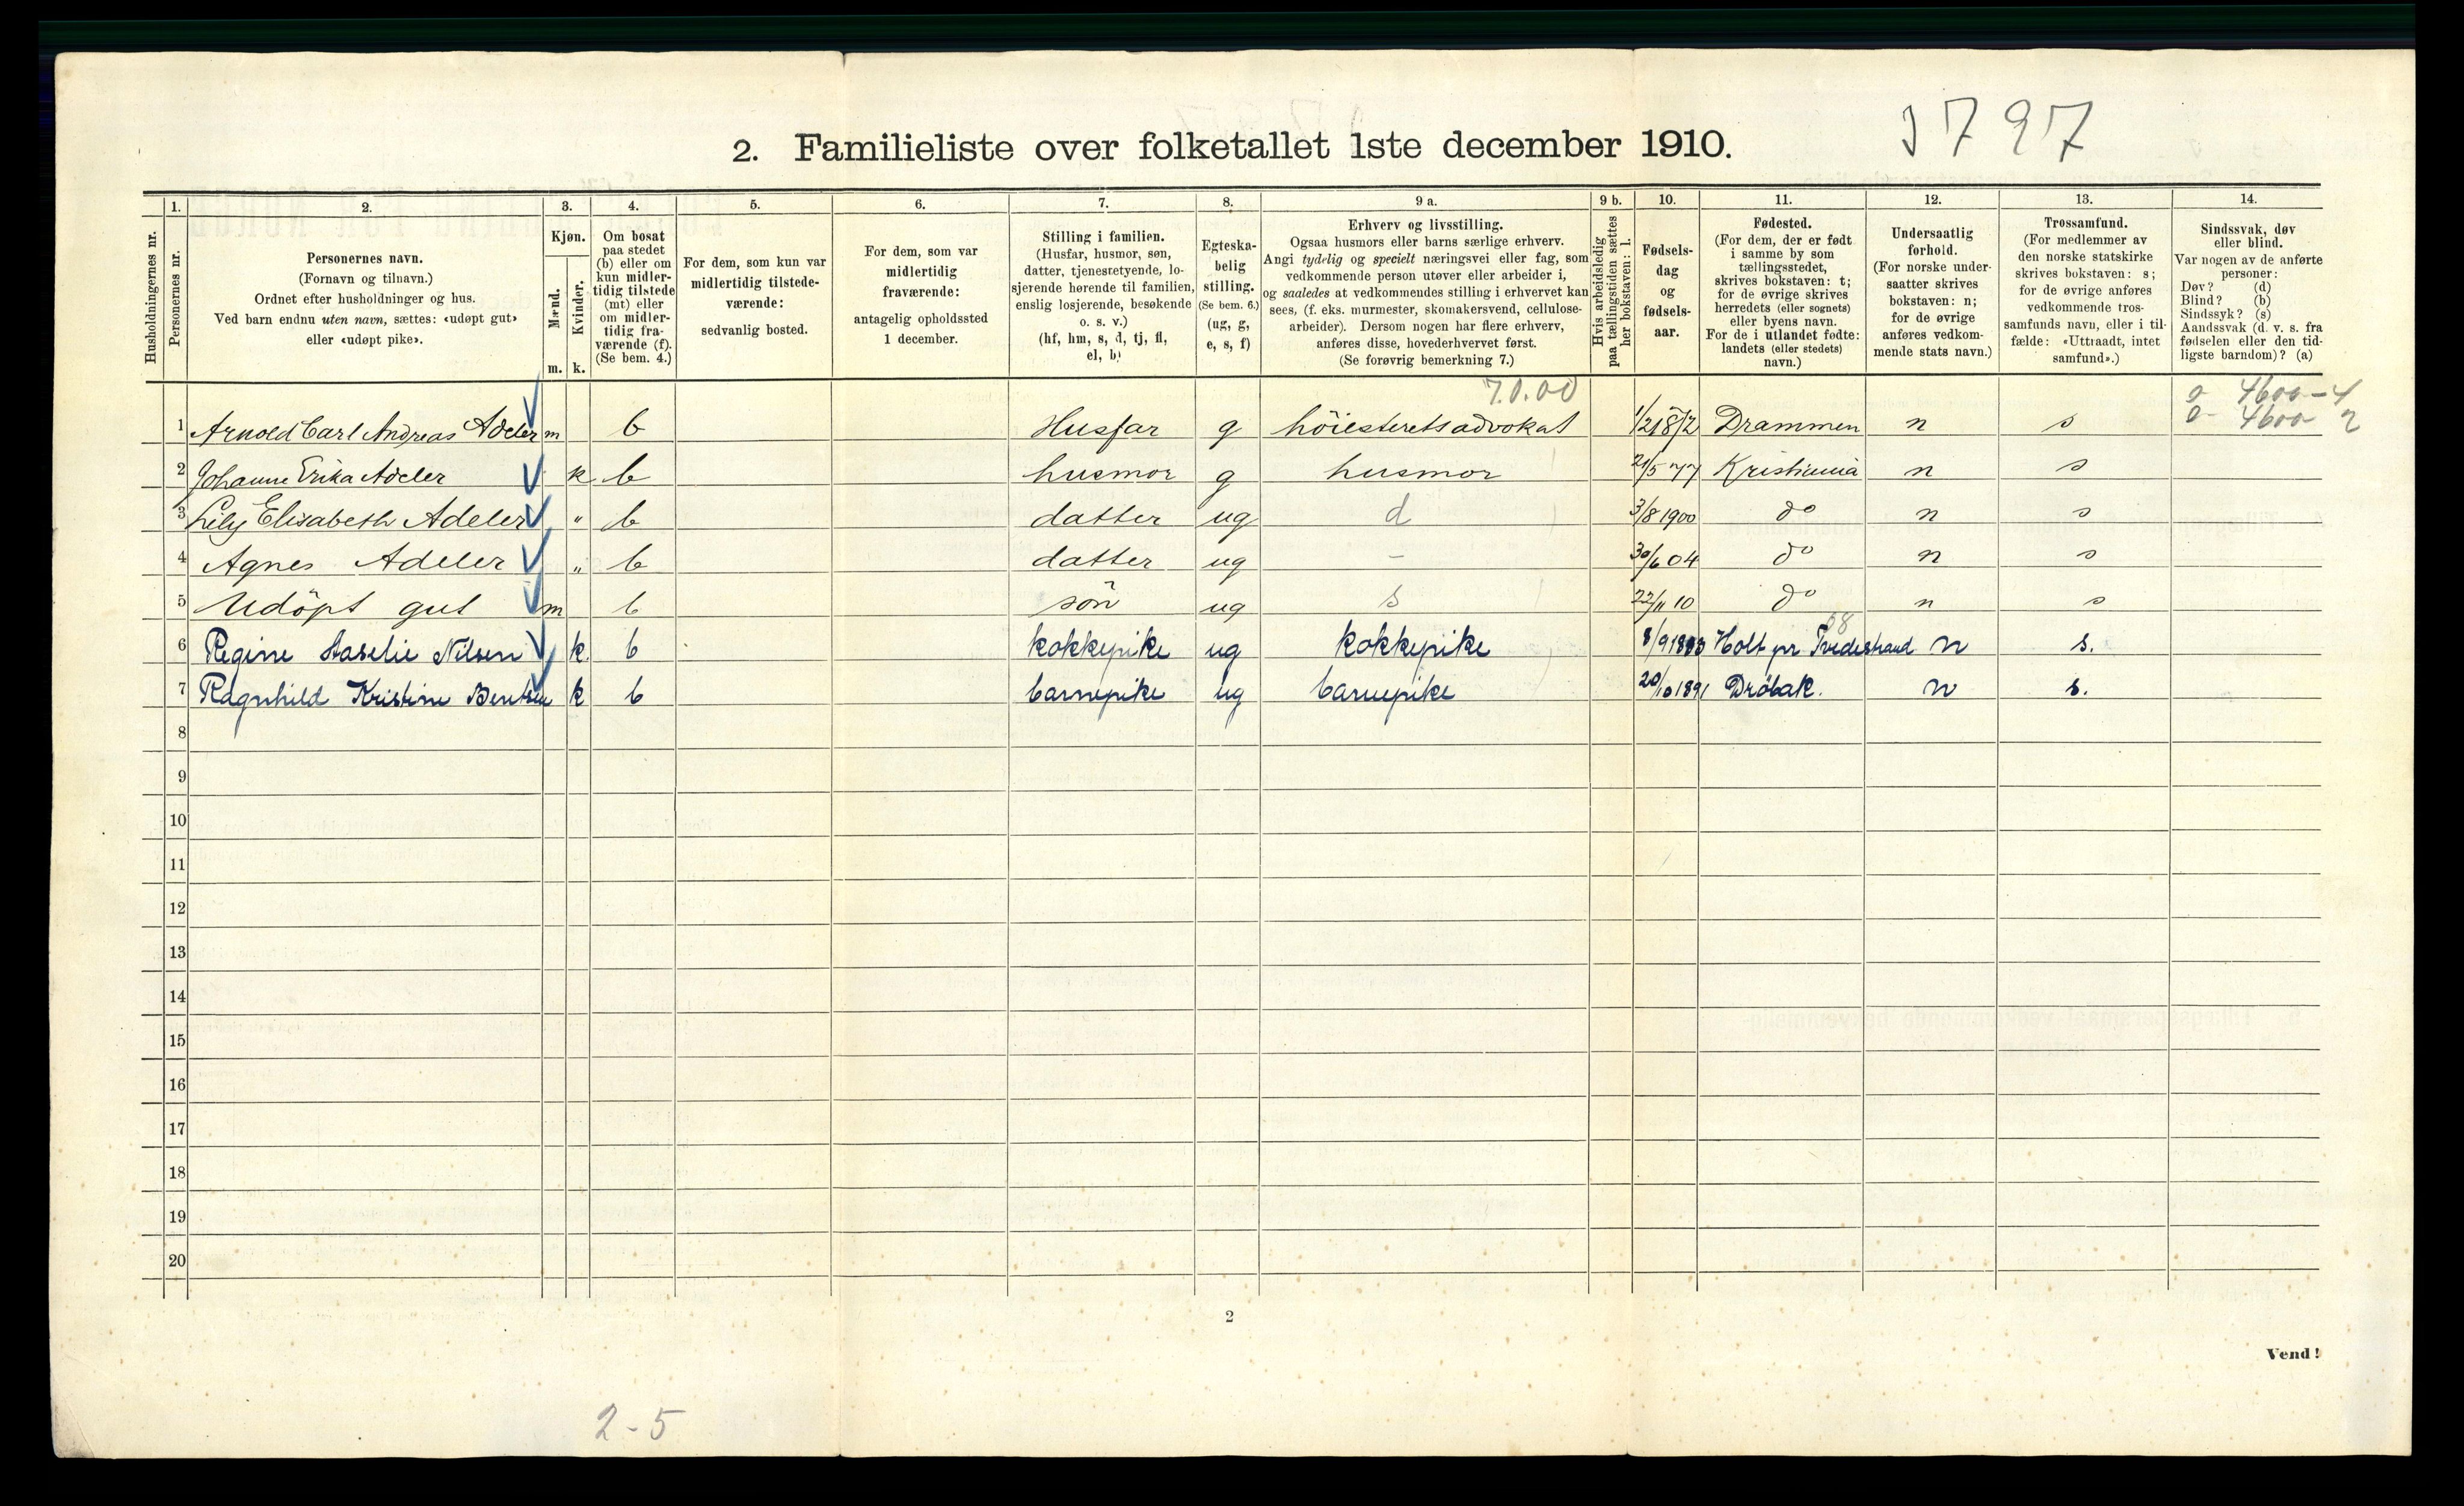 3797
2. Familieliste over folketallet 1ste december 1910.
1. 2. 3. 4. 5. 6. 7. 8. 9 a. 9 b. 10. 11. 12. 13. 14.
Husholdningernes nr.
Personernes nr.
Personernes navn.
(Fornavn og tilnavn.)
Ordnet efter husholdninger og hus.
Ved barn endnu uten navn, sættes: «udøpt gut»
eller «udøpt pike».
Kjøn.
Mænd.
Kvinder.
m. k.
Om bosat
paa stedet
(b) eller om
kun midler-
tidig tilstede
(mt) eller
om midler-
tidig fra-
værende (f).
(Se bem. 4.)
For dem, som kun var
midlertidig tilstede-
værende:
sedvanlig bosted.
For dem, som var
midlertidig
fraværende:
antagelig opholdssted
1 december.
Stilling i familien.
(Husfar, husmor, søn,
datter, tjenestetyende, lo-
sjerende hørende til familien,
enslig losjerende, besøkende
o. s. v.)
(hf, hm, s, d, tj, fl,
el, b)
Egteska-
belig
stilling.
(Se bem. 6.)
(ug, g,
e, s, f)
Erhverv og livsstilling.
Ogsaa husmors eller barns særlige erhverv.
Angi tydelig og specielt næringsvei eller fag, som
vedkommende person utøver eller arbeider i,
og saaledes at vedkommendes stilling i erhvervet kan
sees, (f. eks. murmester, skomakersvend, cellulose-
arbeider). Dersom nogen har flere erhverv,
anføres disse, hovederhvervet først.
(Se forøvrig bemerkning 7.)
Hvis arbeidsledig
paa tællingstiden sættes
her bokstaven: l.
Fødsels-
dag
og
fødsels-
aar.
Fødested.
(For dem, der er født
i samme by som
tællingsstedet,
skrives bokstaven: t;
for de øvrige skrives
herredets (eller sognets)
eller byens navn.
For de i utlandet fødte:
landets (eller stedets)
navn.)
Undersaatlig
forhold.
(For norske under-
saatter skrives
bokstaven: n;
for de øvrige
anføres vedkom-
mende stats navn.)
Trossamfund.
(For medlemmer av
den norske statskirke
skrives bokstaven: s;
for de øvrige anføres
vedkommende tros-
samfunds navn, eller i til-
fælde: «Uttraadt, intet
samfund».)
Sindssvak, døv
eller blind.
Var nogen av de anførte
personer:
Døv? (d)
Blind? (b)
Sindssyk? (s)
Aandssvak (d. v. s. fra
fødselen eller den tid-
ligste barndom)? (a)
7.0.00
4600-4
4600- 2
1 Arnold Carl Andreas Adeler m b Husfar g höiesteretsadvokat 1/2 1872 Drammen n s
2 Johanne Erika Adeler k b husmor g husmor 21/5 77 Kristiania n s
3 Lily Elisabeth Adeler " b datter ug d 3/8 1900 do n s
4 Agnes Adeler " b datter ug - 30/6 04 do n s
5 Udöpt gut m b sön ug s 22/11 10 do n s
6 Regine Nilsen k b kokkepike ug kokkepike 8/9 Holt pr Tvedestrand n s.
7 Ragnhild Kristine Bentsen k b barnepike ug barnepike 20/10 1891 Dröbak. n s.
8
9
10
11
12
13
14
15
16
17
18
19
20
2
Vend!
2-5